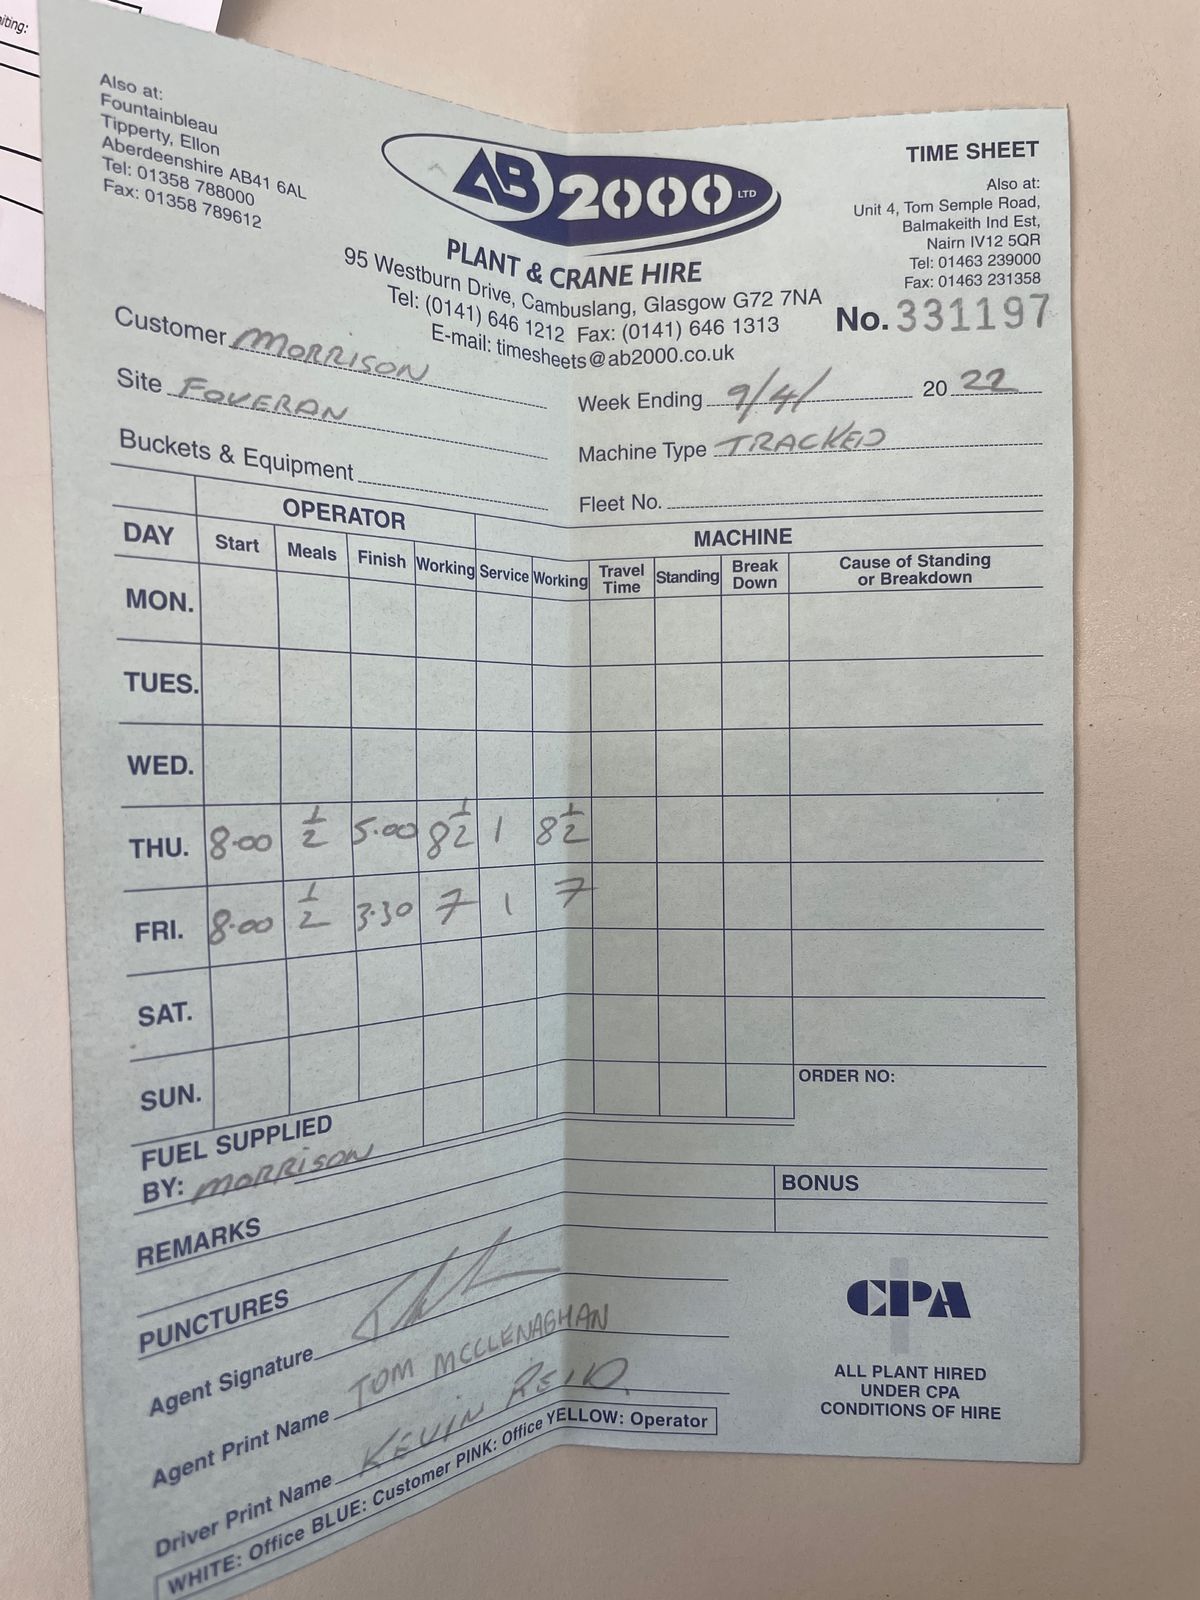 iting:
Also at:
Fountainbleau
Tipperty, Ellon
Aberdeenshire AB41 6AL
Tel: 01358 788000
Fax: 01358 789612
AB 2000 LTD
PLANT & CRANE HIRE
95 Westburn Drive, Cambuslang, Glasgow G72 7NA
Tel: (0141) 646 1212 Fax: (0141) 646 1313
E-mail: timesheets@ab2000.co.uk
TIME SHEET
Also at:
Unit 4, Tom Semple Road,
Balmakeith Ind Est,
Nairn IV12 5QR
Tel: 01463 239000
Fax: 01463 231358
No. 331197
Customer MORRISON
Site FOVERAN
Buckets & Equipment
Week Ending 9/4/ 20 22
Machine Type TRACKED
Fleet No.
OPERATOR MACHINE
DAY Start Meals Finish Working Service Working Travel Time Standing Break Down Cause of Standing or Breakdown
MON.
TUES.
WED.
THU. 8.00 1/2 5.00 8 1/2 1 8 1/2
FRI. 8.00 1/2 3.30 7 1 7
SAT.
SUN.
ORDER NO:
FUEL SUPPLIED
BY: MORRISON
BONUS
REMARKS
PUNCTURES
Agent Signature
Agent Print Name TOM MCCLENAGHAN
Driver Print Name KEVIN REID
WHITE: Office BLUE: Customer PINK: Office YELLOW: Operator
CPA
ALL PLANT HIRED
UNDER CPA
CONDITIONS OF HIRE